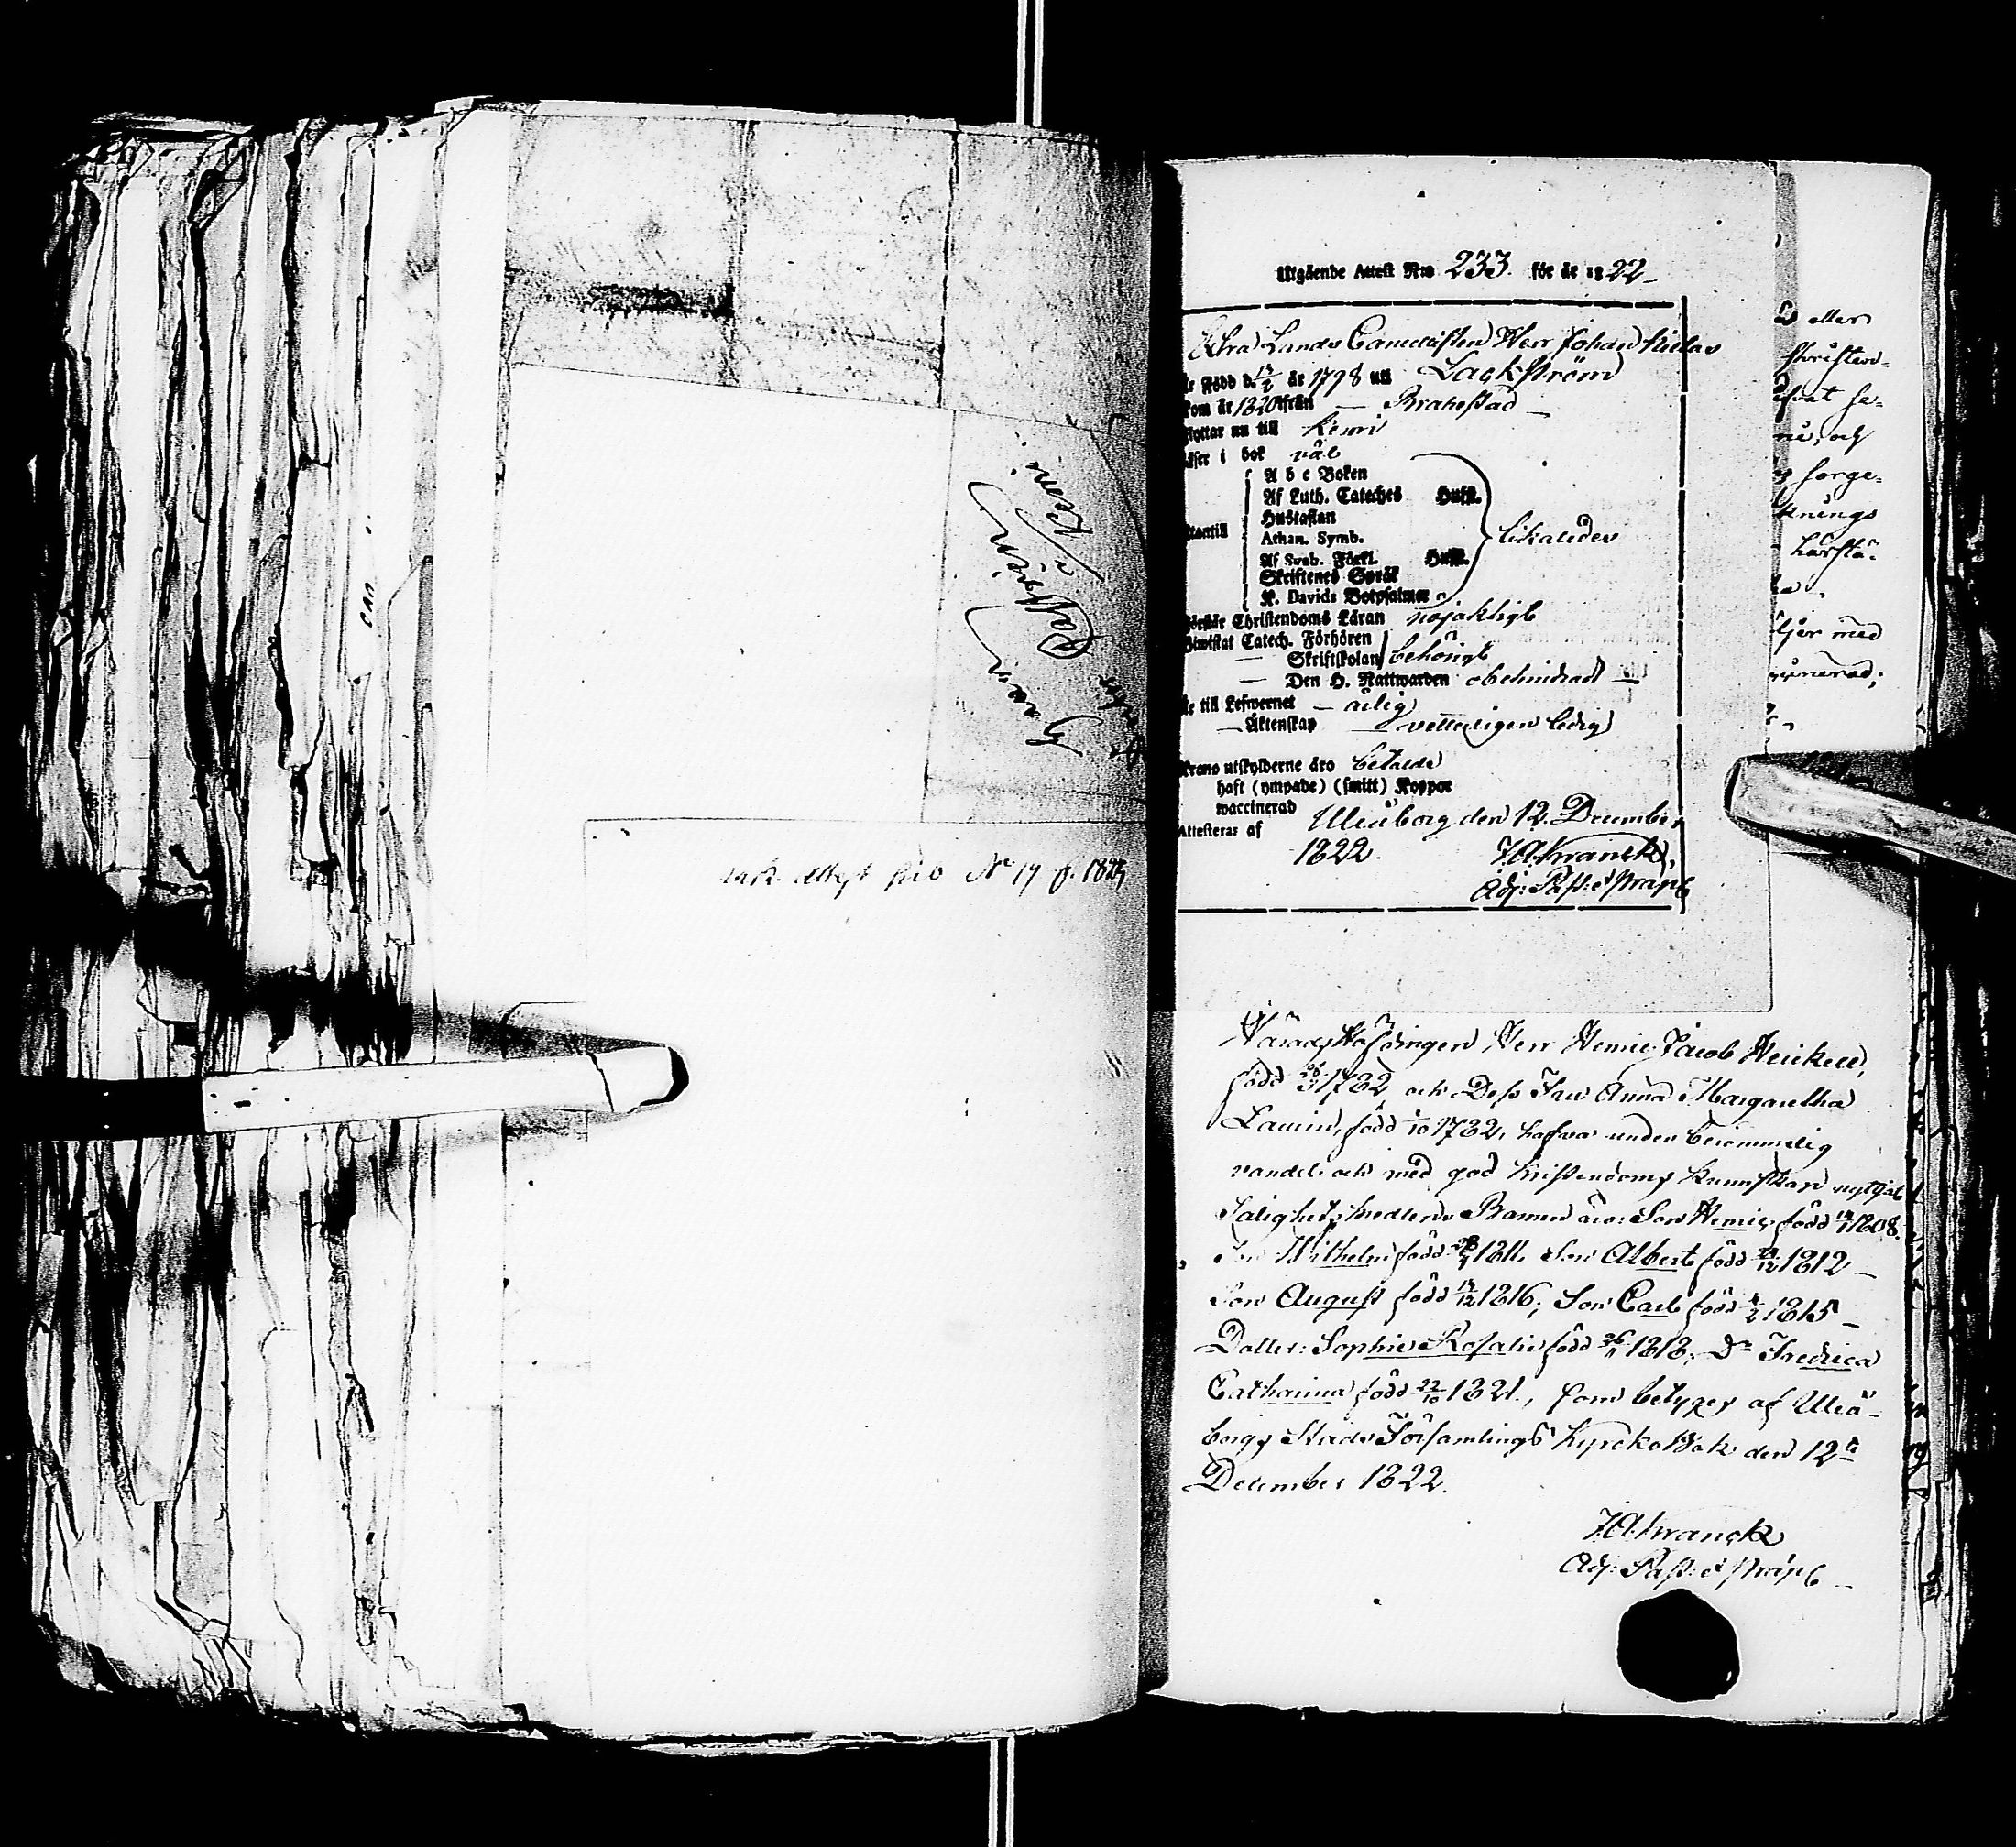 ink. Attest sub No 17 p. 1823
Utgående Attest Nro 233. för år 1822
Extra Lands Cancelisten Herr Johan Niclas
Lackström
är född d. 13/2 år 1798 uti
kom år 1820 ifrån — Brahestad —
flyttar nu till Kemi
läser i bok väl
A b c Boken
Af Luth. Cateches Hufst.
Hustaflan
Athan. Symb.
likaledes
utantill
Af Sveb. Förkl. Hufst.
Skriftenes Språk
K. Davids Botpsalmer
förstår Christendoms Läran nöjaktigt
Biwistat Catech. Förhören
— Skriftskolan behörigt
— Den H. Nattwarden obehindrad —
är till Lefwernet — ärlig
— Äktenskap — vetterligen ledig
Krono utskylderne äro betalde
haft (ympade) (smitt) Koppor
waccinerad
Attesteras af Uleåborg den 12. December
1822. J A Kranck,
Adj: Past: & Præp:
HäradsHöfdingen Herr Henric Jacob Heickell,
född 1782 och Dess Fru Anna Margaretha
Laurin, född 1/10 1782, hafva under berömmelig
vandel och med god Kristendoms Kunskap nyttjat
Salighets medlen. Barnen äro: Son Henric född 1808.
Son Wilhelm född 1811. Son Albert född 1812 —
Son August född 13/12 1816; Son Carl född 1815 —
Dotter: Sophie Rosalie född 26/11 1818; Dr Fredrica
Catharina född 22/10 1821., som betygas af Uleå-
borgs Stads Församlings Kyrcko Bok den 12te
December 1822.
J A Kranck
Adj: Past: & Præp:
eller
Christen-
och
förge-
knings
härstä-
ljer med